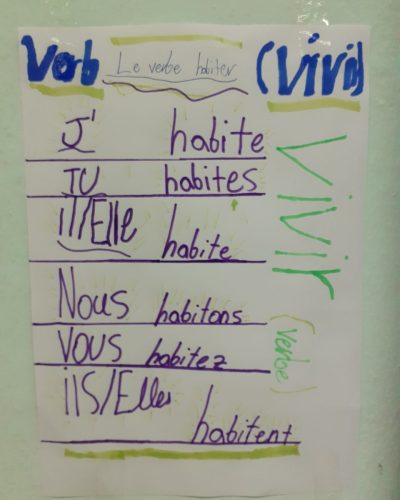 Verb Le verbe habiter (Vivir)
J' habite
TU habites
il/Elle habite
Nous habitons
Vous habitez
ils/Elles habitent
Vivir
(verbe)